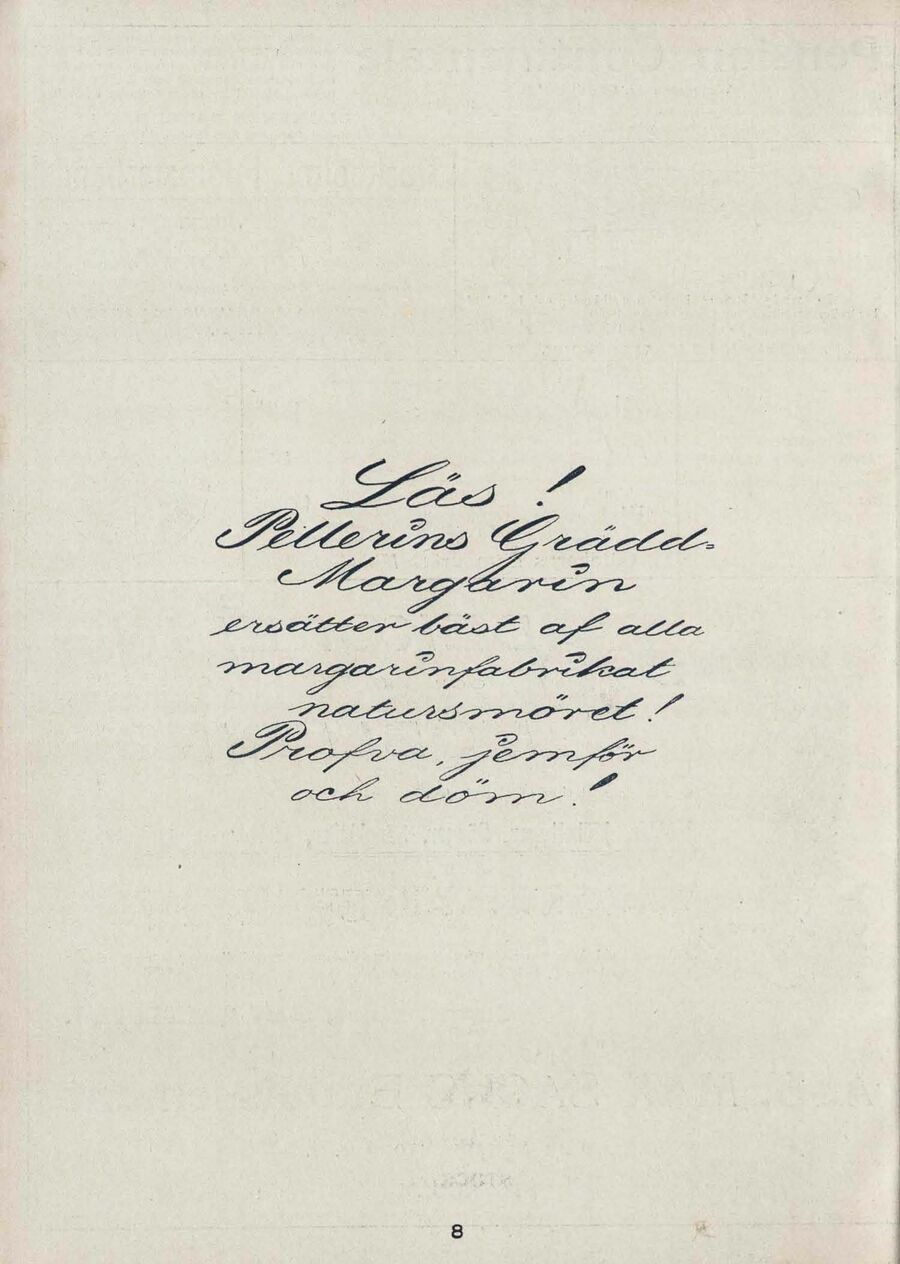 Läs!
Pellerins Grädd-
Margarin
ersätter bäst af alla
margarinfabrikat
natursmöret!
Profva, jemför
och döm!
8